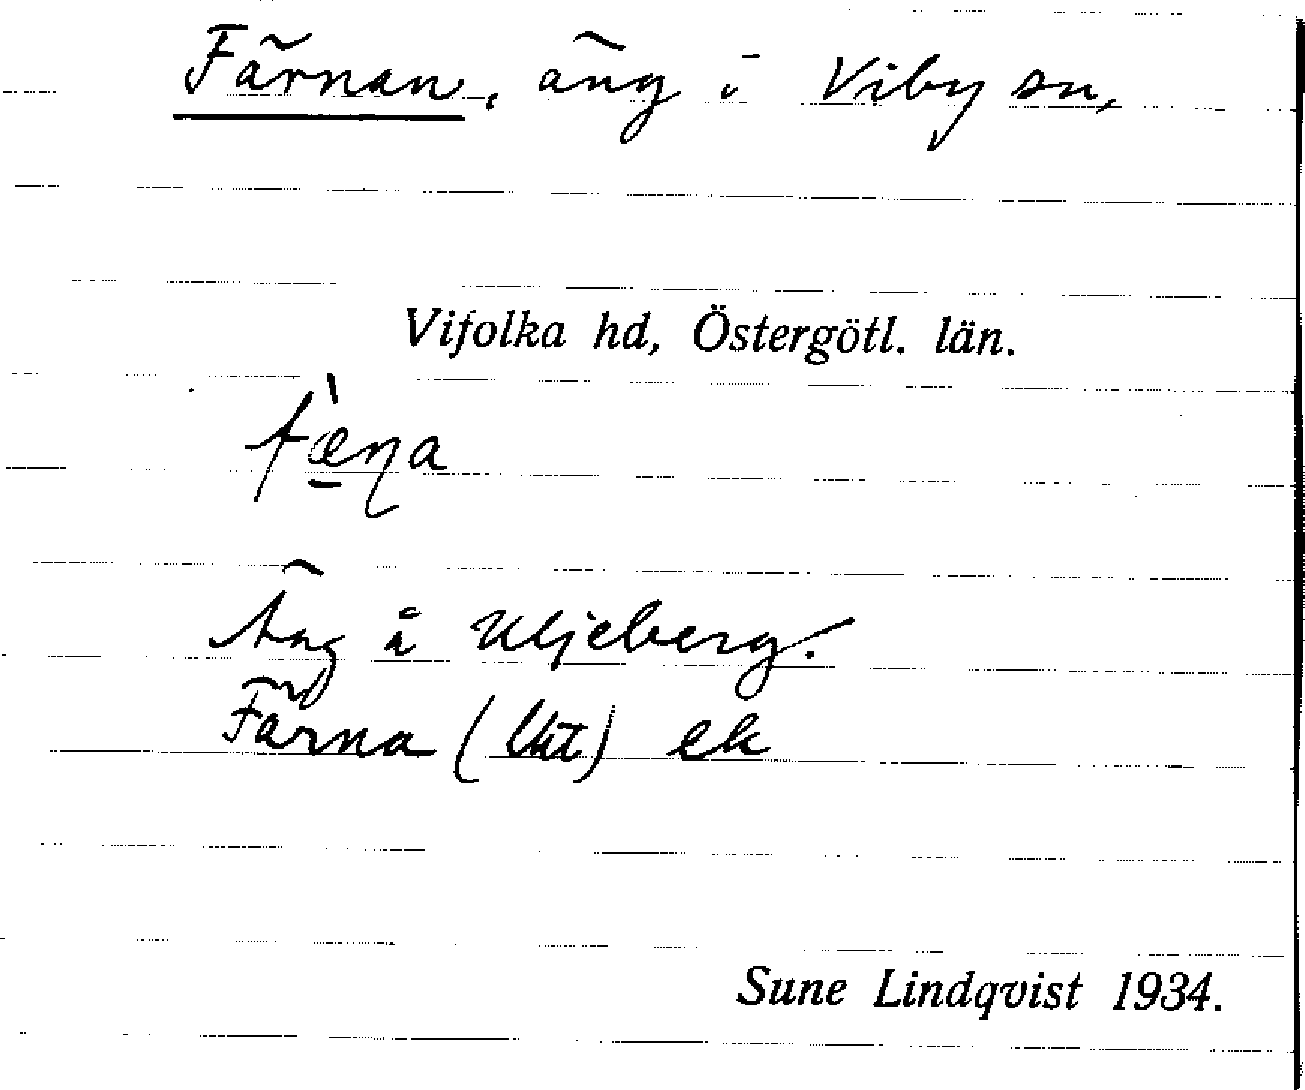 Färnan, äng i Viby sn,
Vifolka hd, Östergötl. län.
fæ̠̀ɳa
Äng å Uljeberg.
Färna (Ukt) ek
Sune Lindqvist 1934.